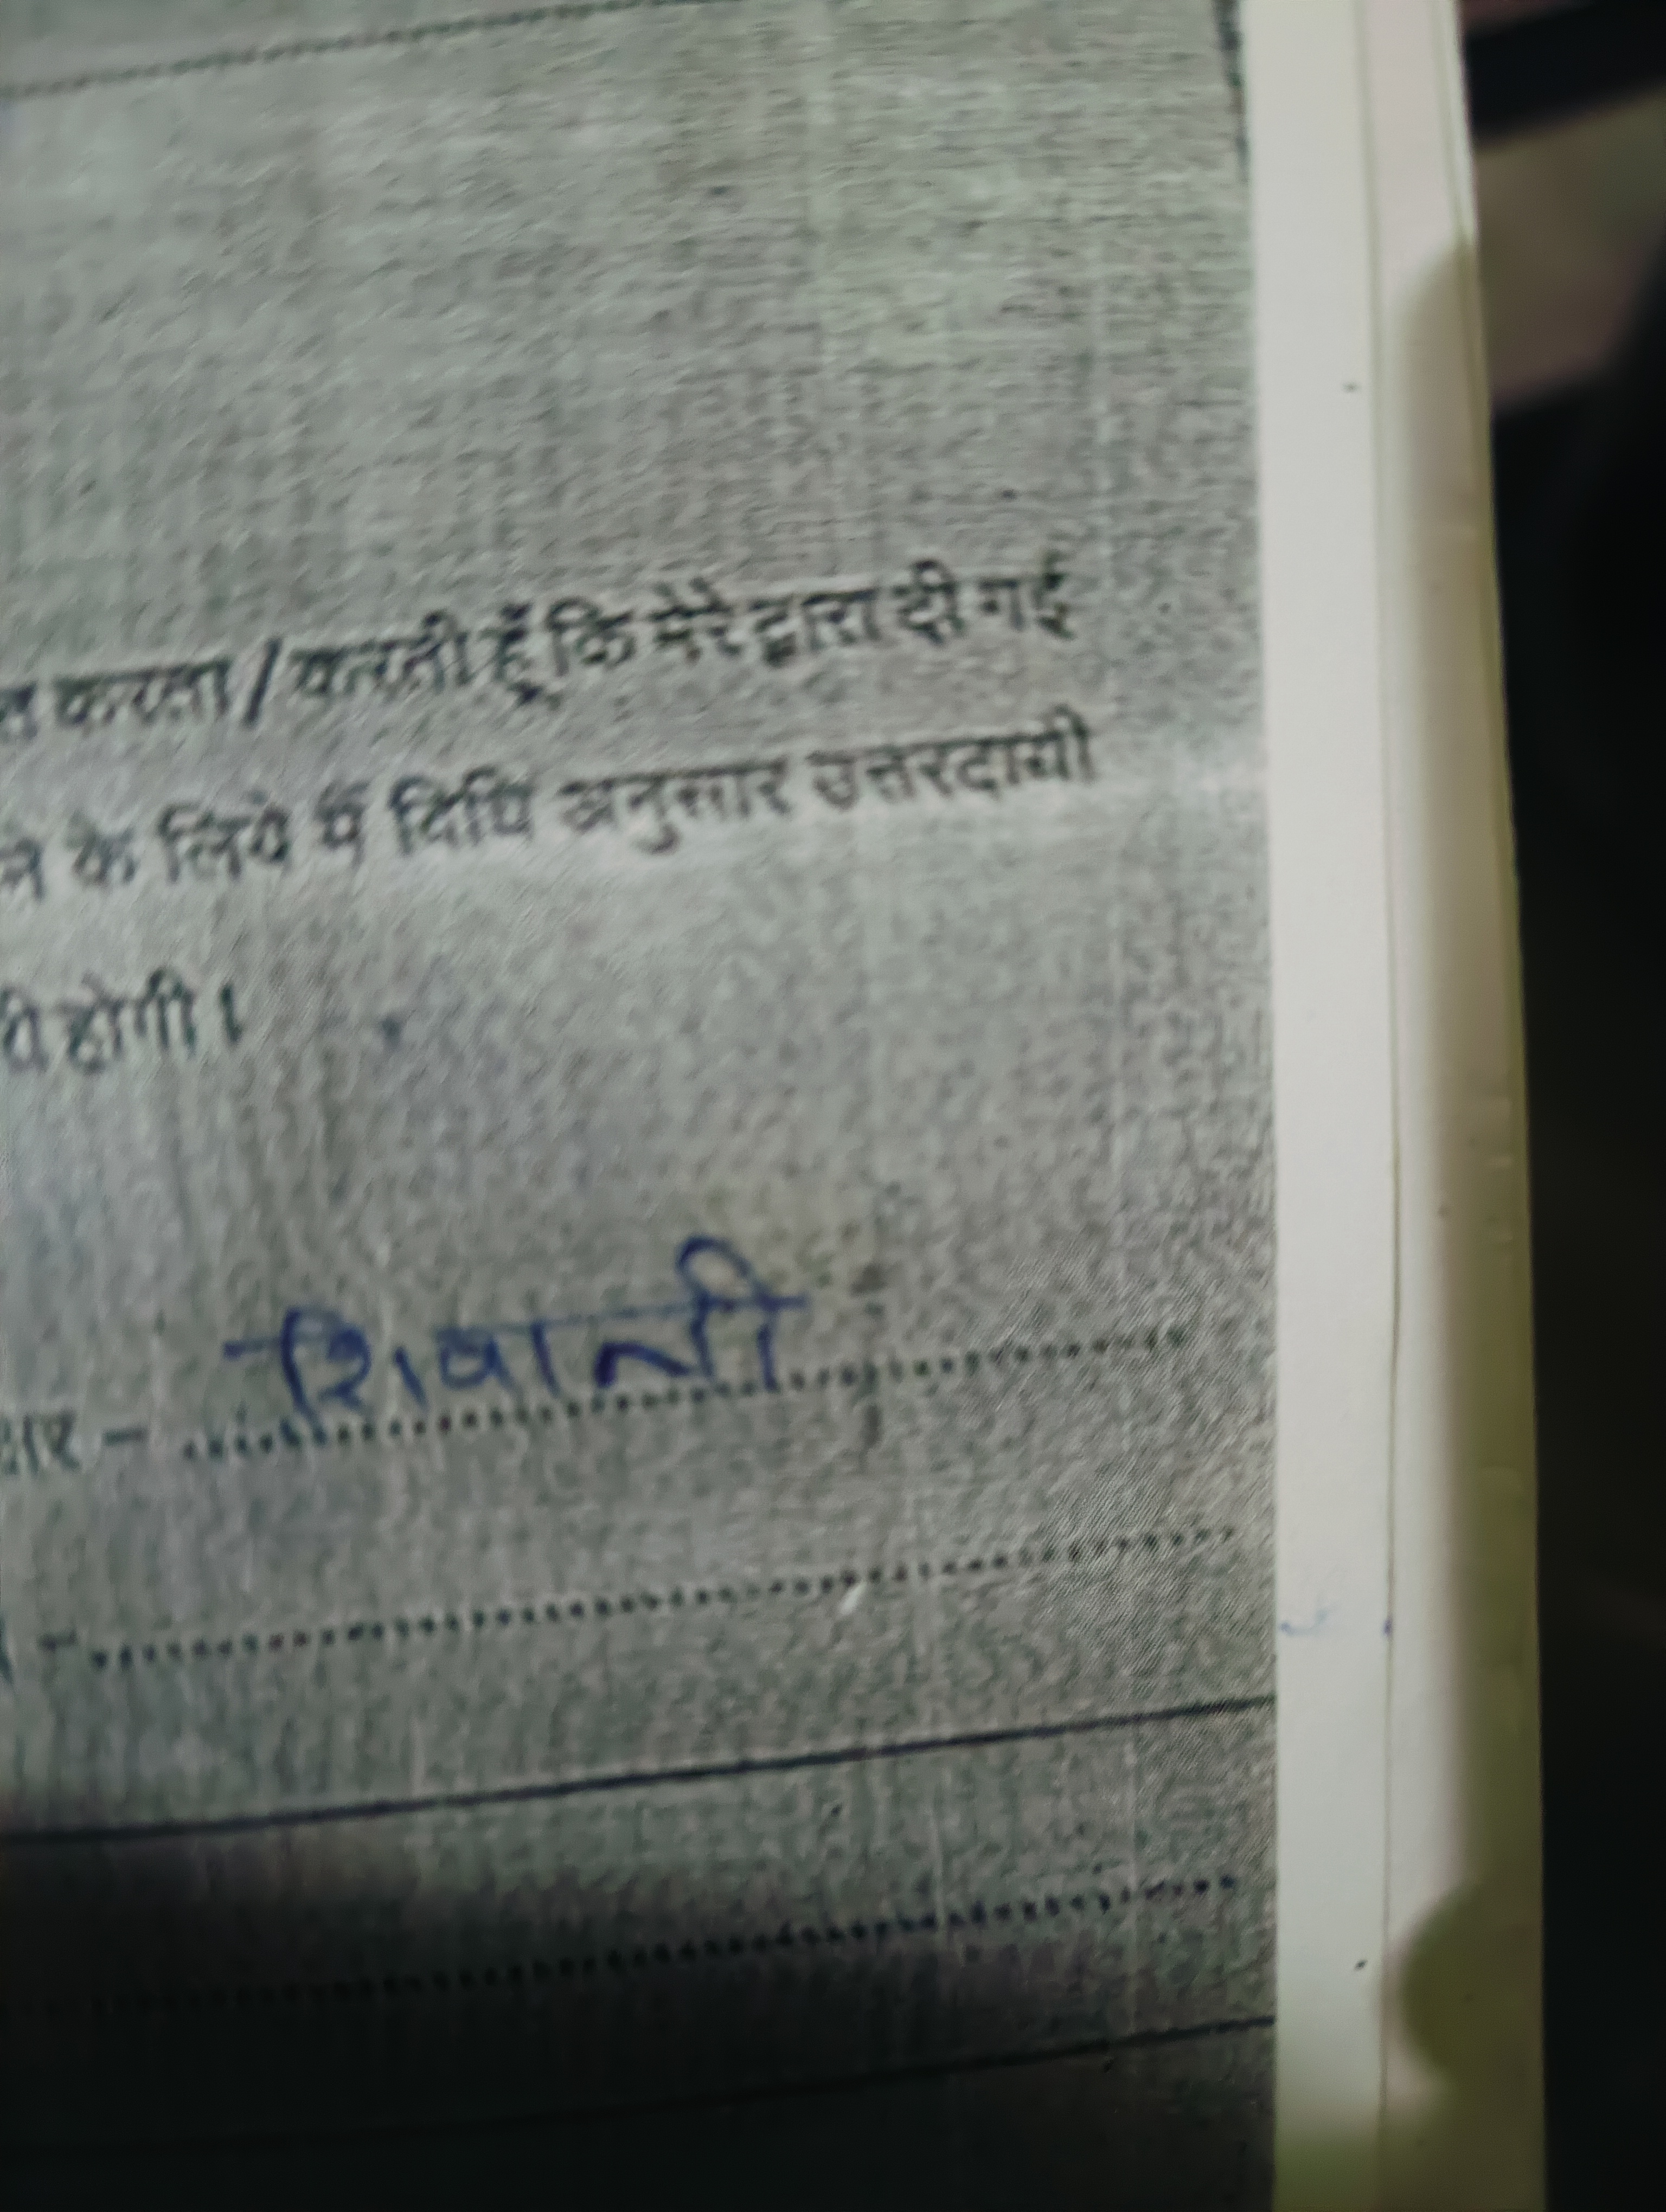 करता / करती हूँ कि मेरे द्वारा दी गई
के लिये मैं विधि अनुसार उत्तरदायी
होगी।
शिवानी